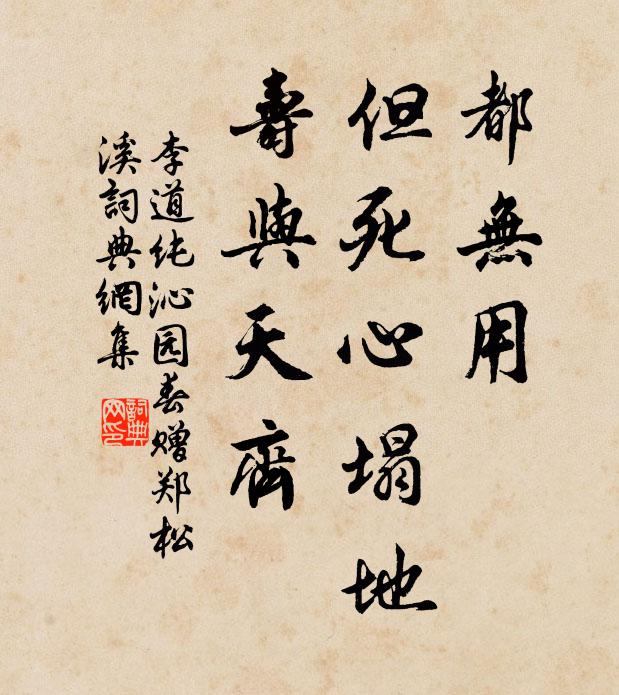 都無用
但死心塌地
壽與天齊
李道纯沁园春赠郑松
溪詞典網集
詞典
网印